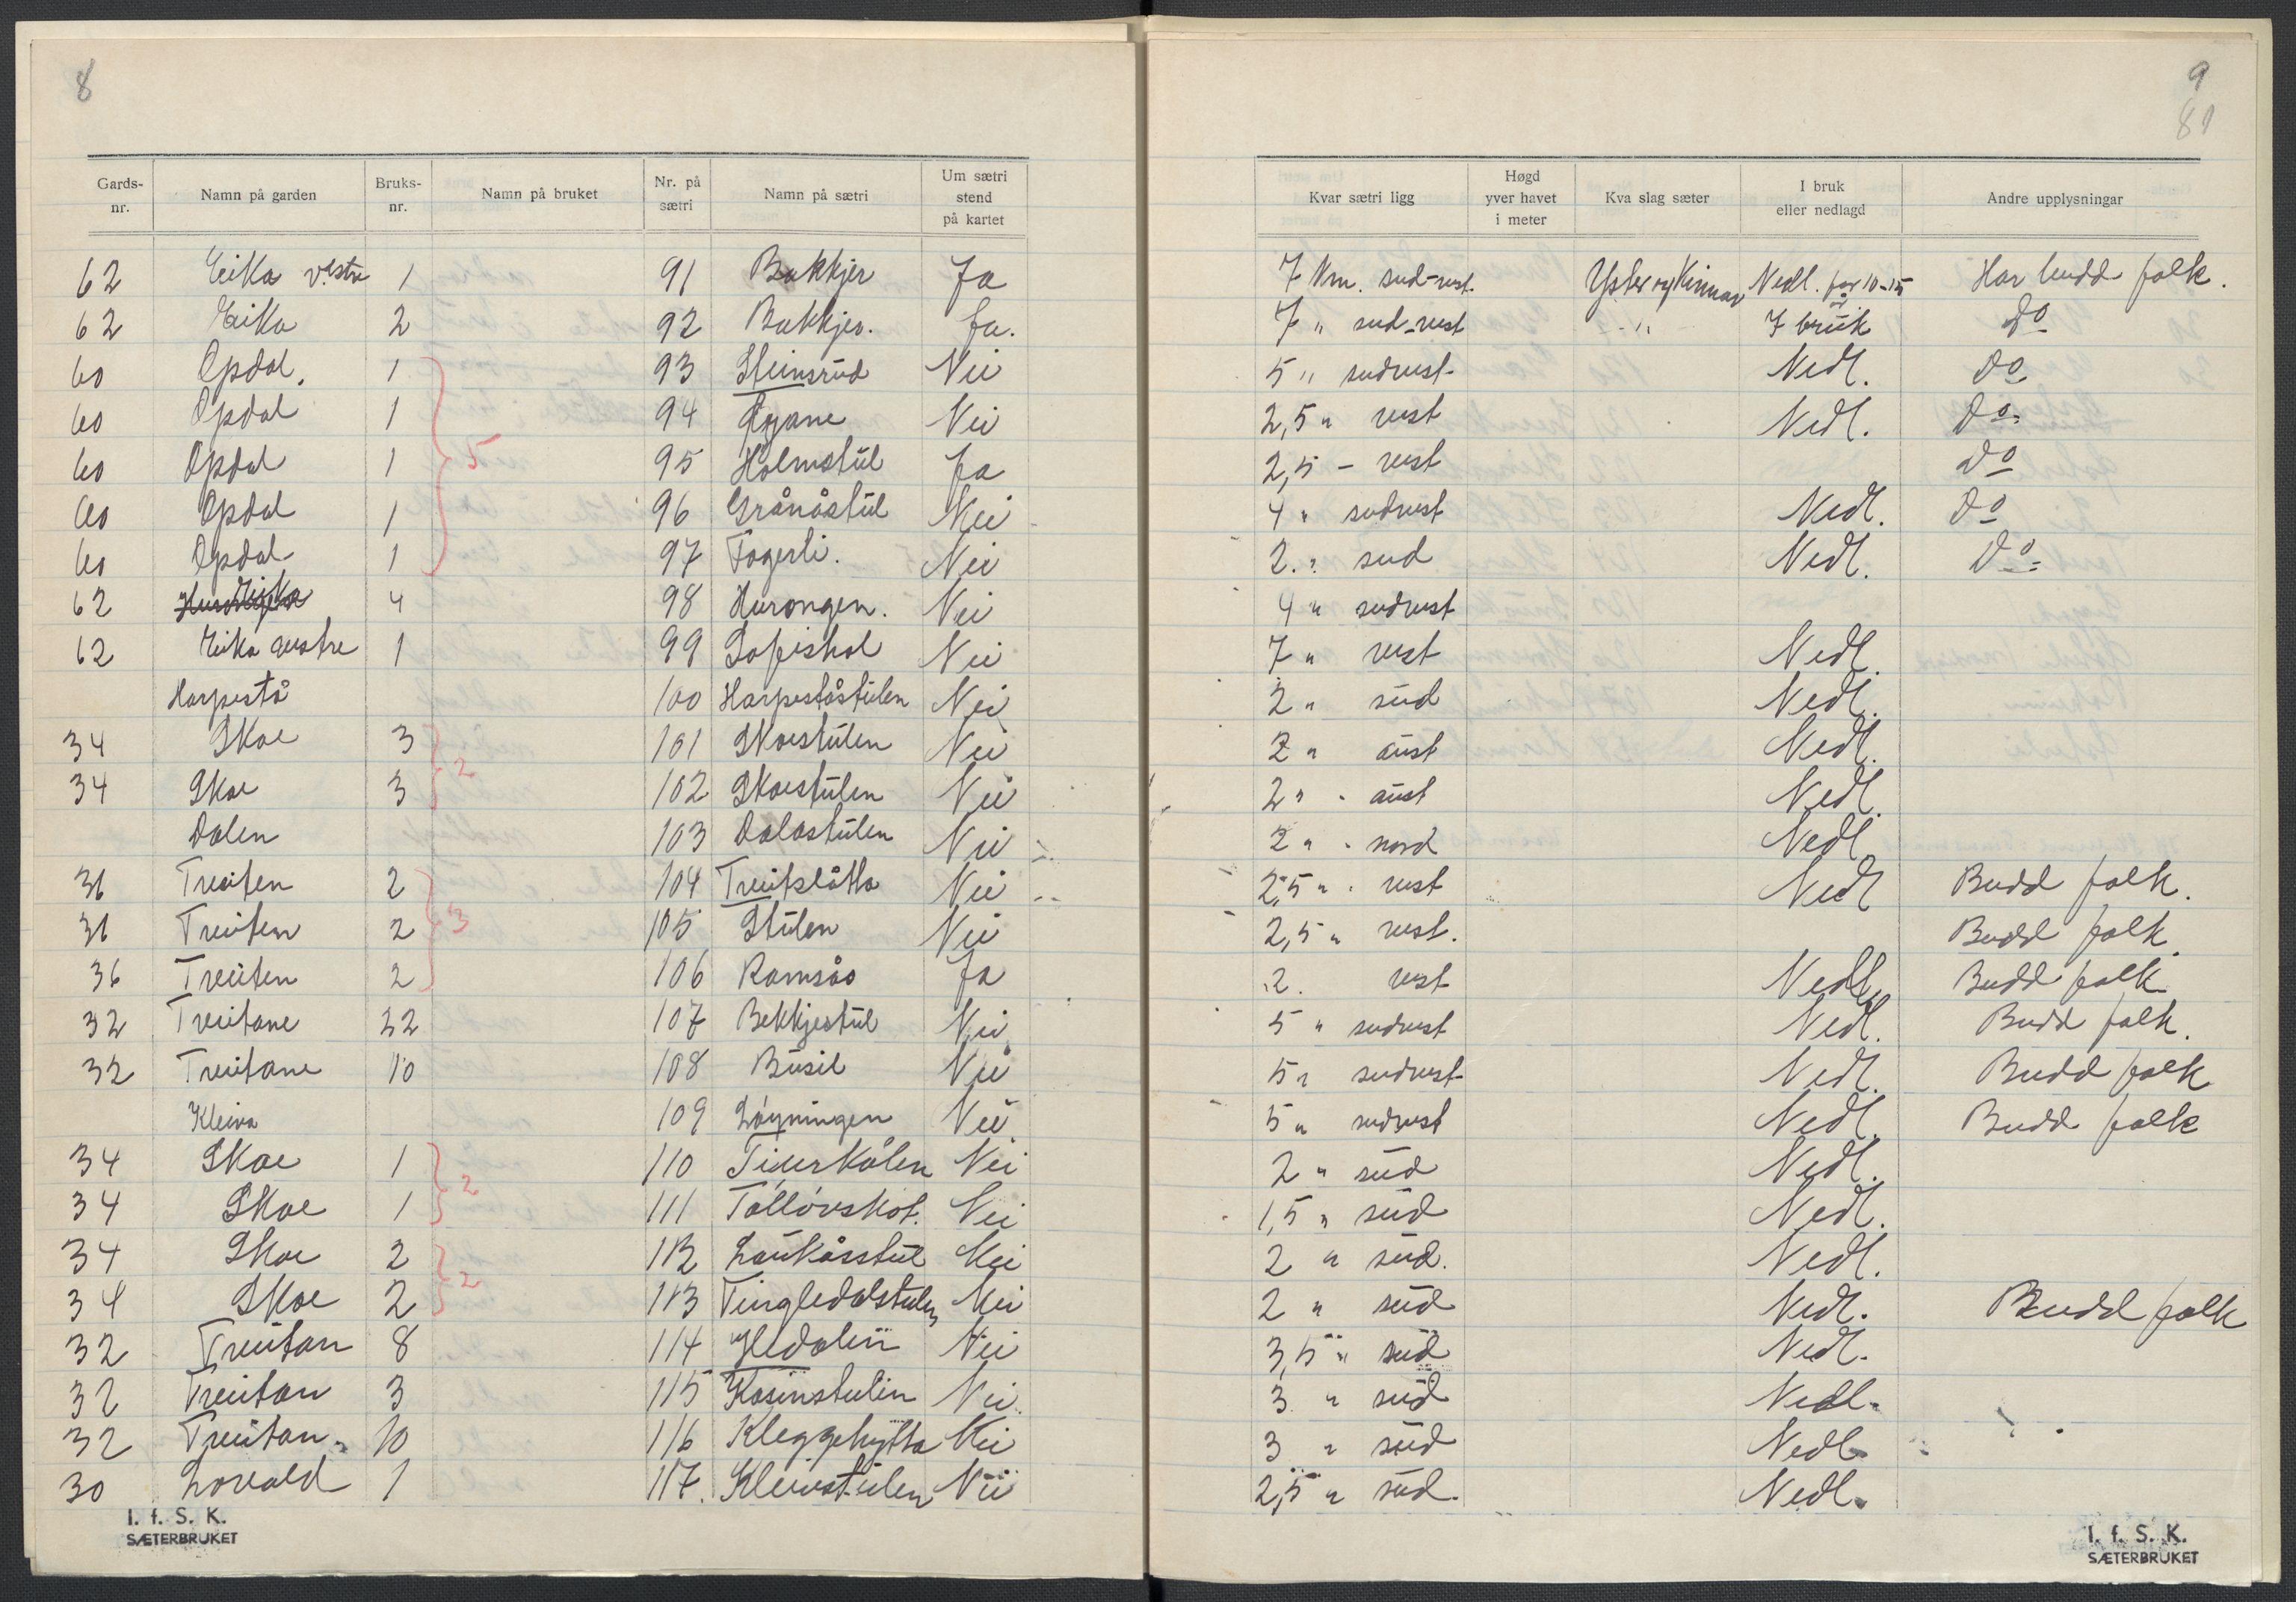 8
Gards-nr. Namn på garden Bruks-nr. Namn på bruket Nr. på sætri Namn på sætri Um sætri stend på kartet
62 Eika vestre 1 91 Bakkjer Ja
62 Eika 2 92 Bakkjer. Ja.
60 Opdal. 1 93 Steinsrud Nei
60 Opdal 1 94 Øygane Nei
60 Opdal 1 95 Holmstul Ja
60 Opdal 1 96 Grånåstul Nei
60 Opdal 1 97 Fagerli. Nei
5
62 Eika 4 98 Hurongen. Nei
62 Eika austre 1 99 Nei
Harpestå 100 Harpeståstulen Nei
34 Skoe 3 101 Skoestulen Nei
34 Skoe 3 102 Skoestulen Nei
2
Dalen 103 Dalastulen Nei
36 Treiten 2 104 Treitslåtta Nei
36 Treiten 2 105 Stulen Nei
36 Treiten 2 106 Ramsås Ja
3
32 Treitane 22 107 Bekkjestul Nei
32 Treitane 10 108 Busil Nei
Kleiva 109 Løyningen Nei
34 Skoe 1 110 Nei
34 Skoe 1 111 Tolløvskot. Nei
2
34 Skoe 2 112 Laukåsstul Nei
34 Skoe 2 113 Tingledalstulen Nei
2
32 Treitan 8 114 Hedalen Nei
32 Treitan 3 115 Kasinstulin Nei
32 Treitan. 10 116 Kleggehytta Nei
30 Lovald 1 117. Kleivstulen Nei
I. f. S. K.
SÆTERBRUKET
9
81
Kvar sætri ligg Høgd yver havet i meter Kva slag sæter I bruk eller nedlagd Andre upplysningar
7 Km. sud-vest. Yster og Kinnar Nedl. for 10-15 år Har budd folk.
7 " sud-vest " I bruk Do
5 " sudvest Nedl. Do
2,5 " vest Nedl. Do
2,5 - vest Do
4 " sudvest Nedl. Do
2. " sud Nedl. Do
4 " sudvest
7 " vest Nedl.
2 " sud Nedl.
2 " aust Nedl.
2 " aust Nedl.
2 " nord Nedl
2,5 " vest Nedl Budd folk.
2,5 " vest. Budd folk.
2. vest Nedl. Budd folk
5 " sudvest Nedl. Budd folk.
5 " sudvest Nedl. Budd folk
5 " sudvest Nedl. Budd folk
2 " sud Nedl.
1,5 " sud Nedl.
2 " sud. Nedl.
2 " sud Nedl. Budd folk
3,5 " sud Nedl.
3 " sud Nedl.
3 " sud Nedl.
2,5 " sud. Nedl.
I. f. S. K.
SÆTERBRUKET